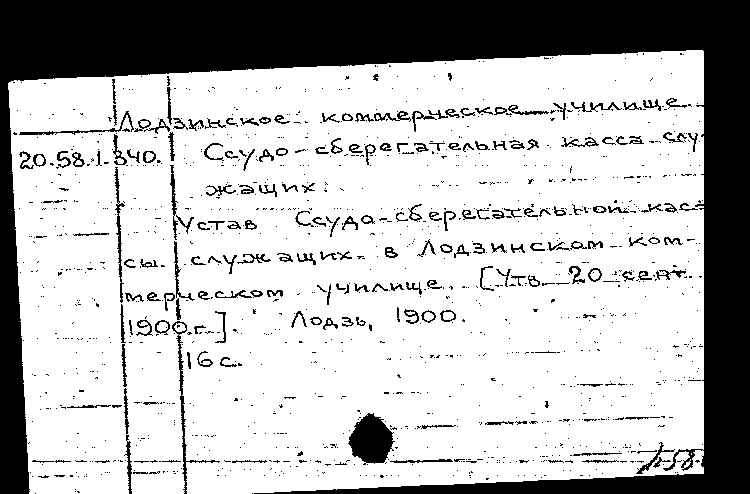 Лодзинское коммерческое училище
20.58.1.340. Ссудо-сберегательная касса слу-
жащих.
Устав Ссудо-сберегательной кас-
сы служащих в Лодзинском ком-
мерческом училище. [Утв. 20 сент.
1900 г.]. Лодзь, 1900.
16 с.